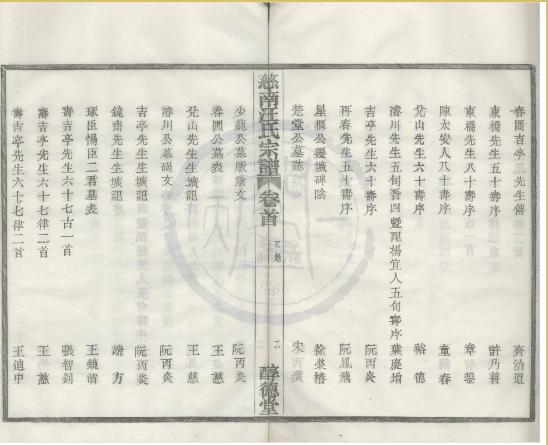 春圃吉亭二先生傳 齊治道
東橋先生五十壽序 許乃普
東橋先生八十壽序 章黎
陳太安人八十壽序 童春
梵山先生六十壽序 裕德
濬川先生五旬晉四暨 楊宜人五旬壽序 葉慶增
吉亭先生六十壽序 阮丙炎
再春先生五十壽序 阮鳳飛
星樞公遷城碑陰 徐榮椿
楚堂公墓誌 朱丙
慈南汪氏宗譜 卷首 目錄 二 醇德堂
少蘭公墓版陰文 阮丙炎
春圃公墓表 王慈
梵山先生生壙記 王慈
濬川公墓碣文 阮丙炎
吉亭先生生壙記 阮丙炎
鏡齋先生生壙記 端方
琢臣惕臣二君墓表 王鏡清
壽吉亭先生六十七古一首 張智釗
壽吉亭先生六十七律二首 王慈
壽吉亭先生六十七律二首 王迪中